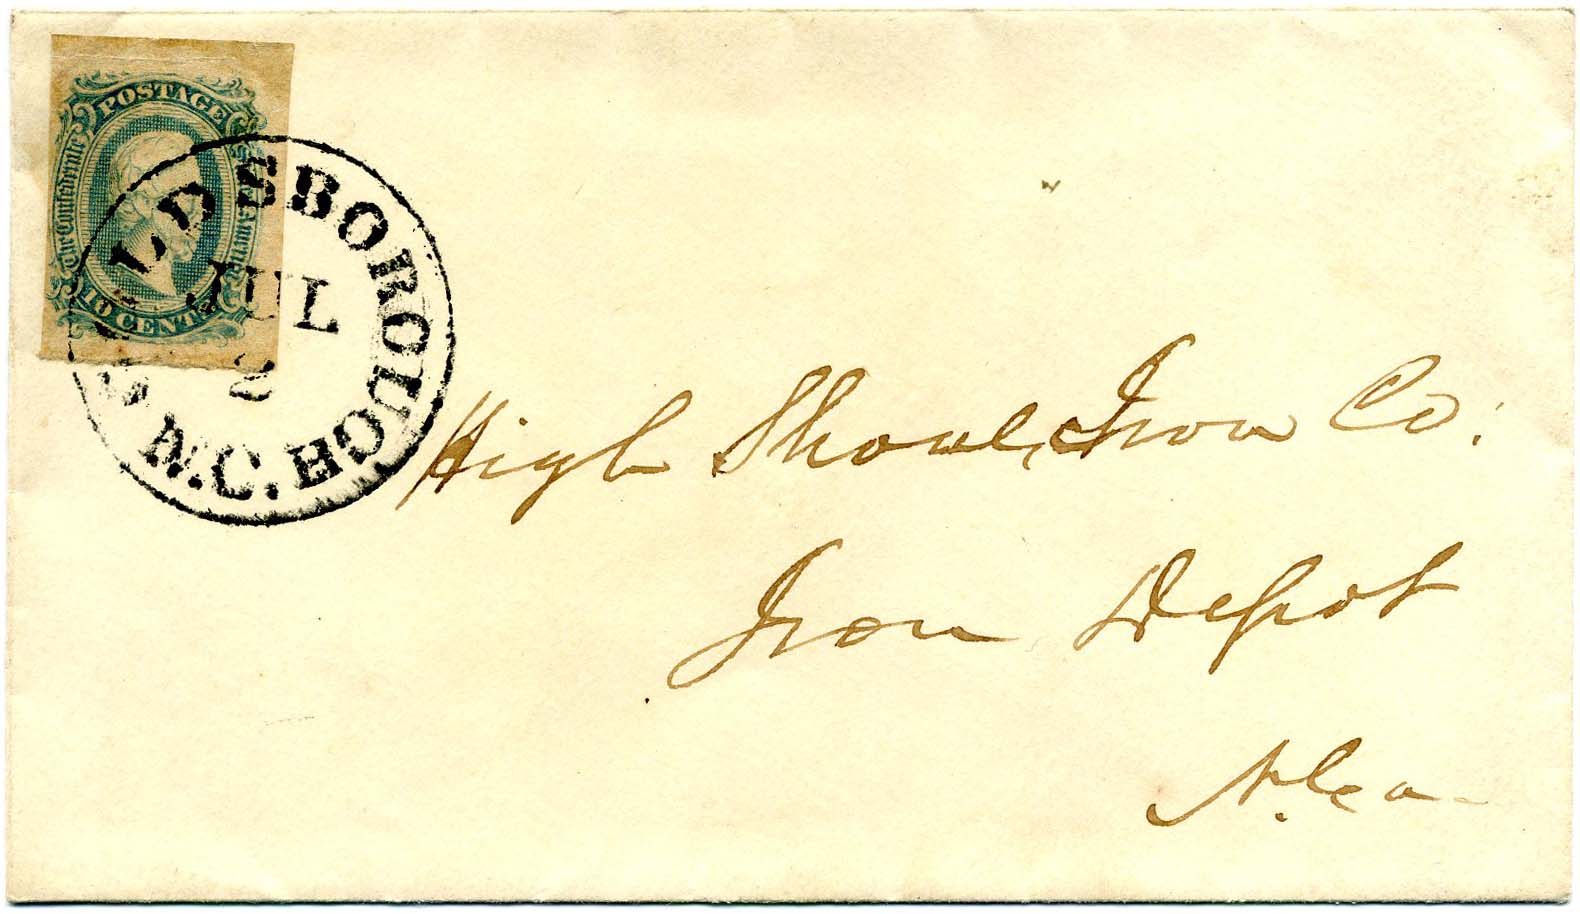 POSTAGE
The Confederate States of America
10 CENTS
LDSBOROUGH
N.C.
JUL
2
High Shoal Iron Co.
Iron Depot
N. Ca